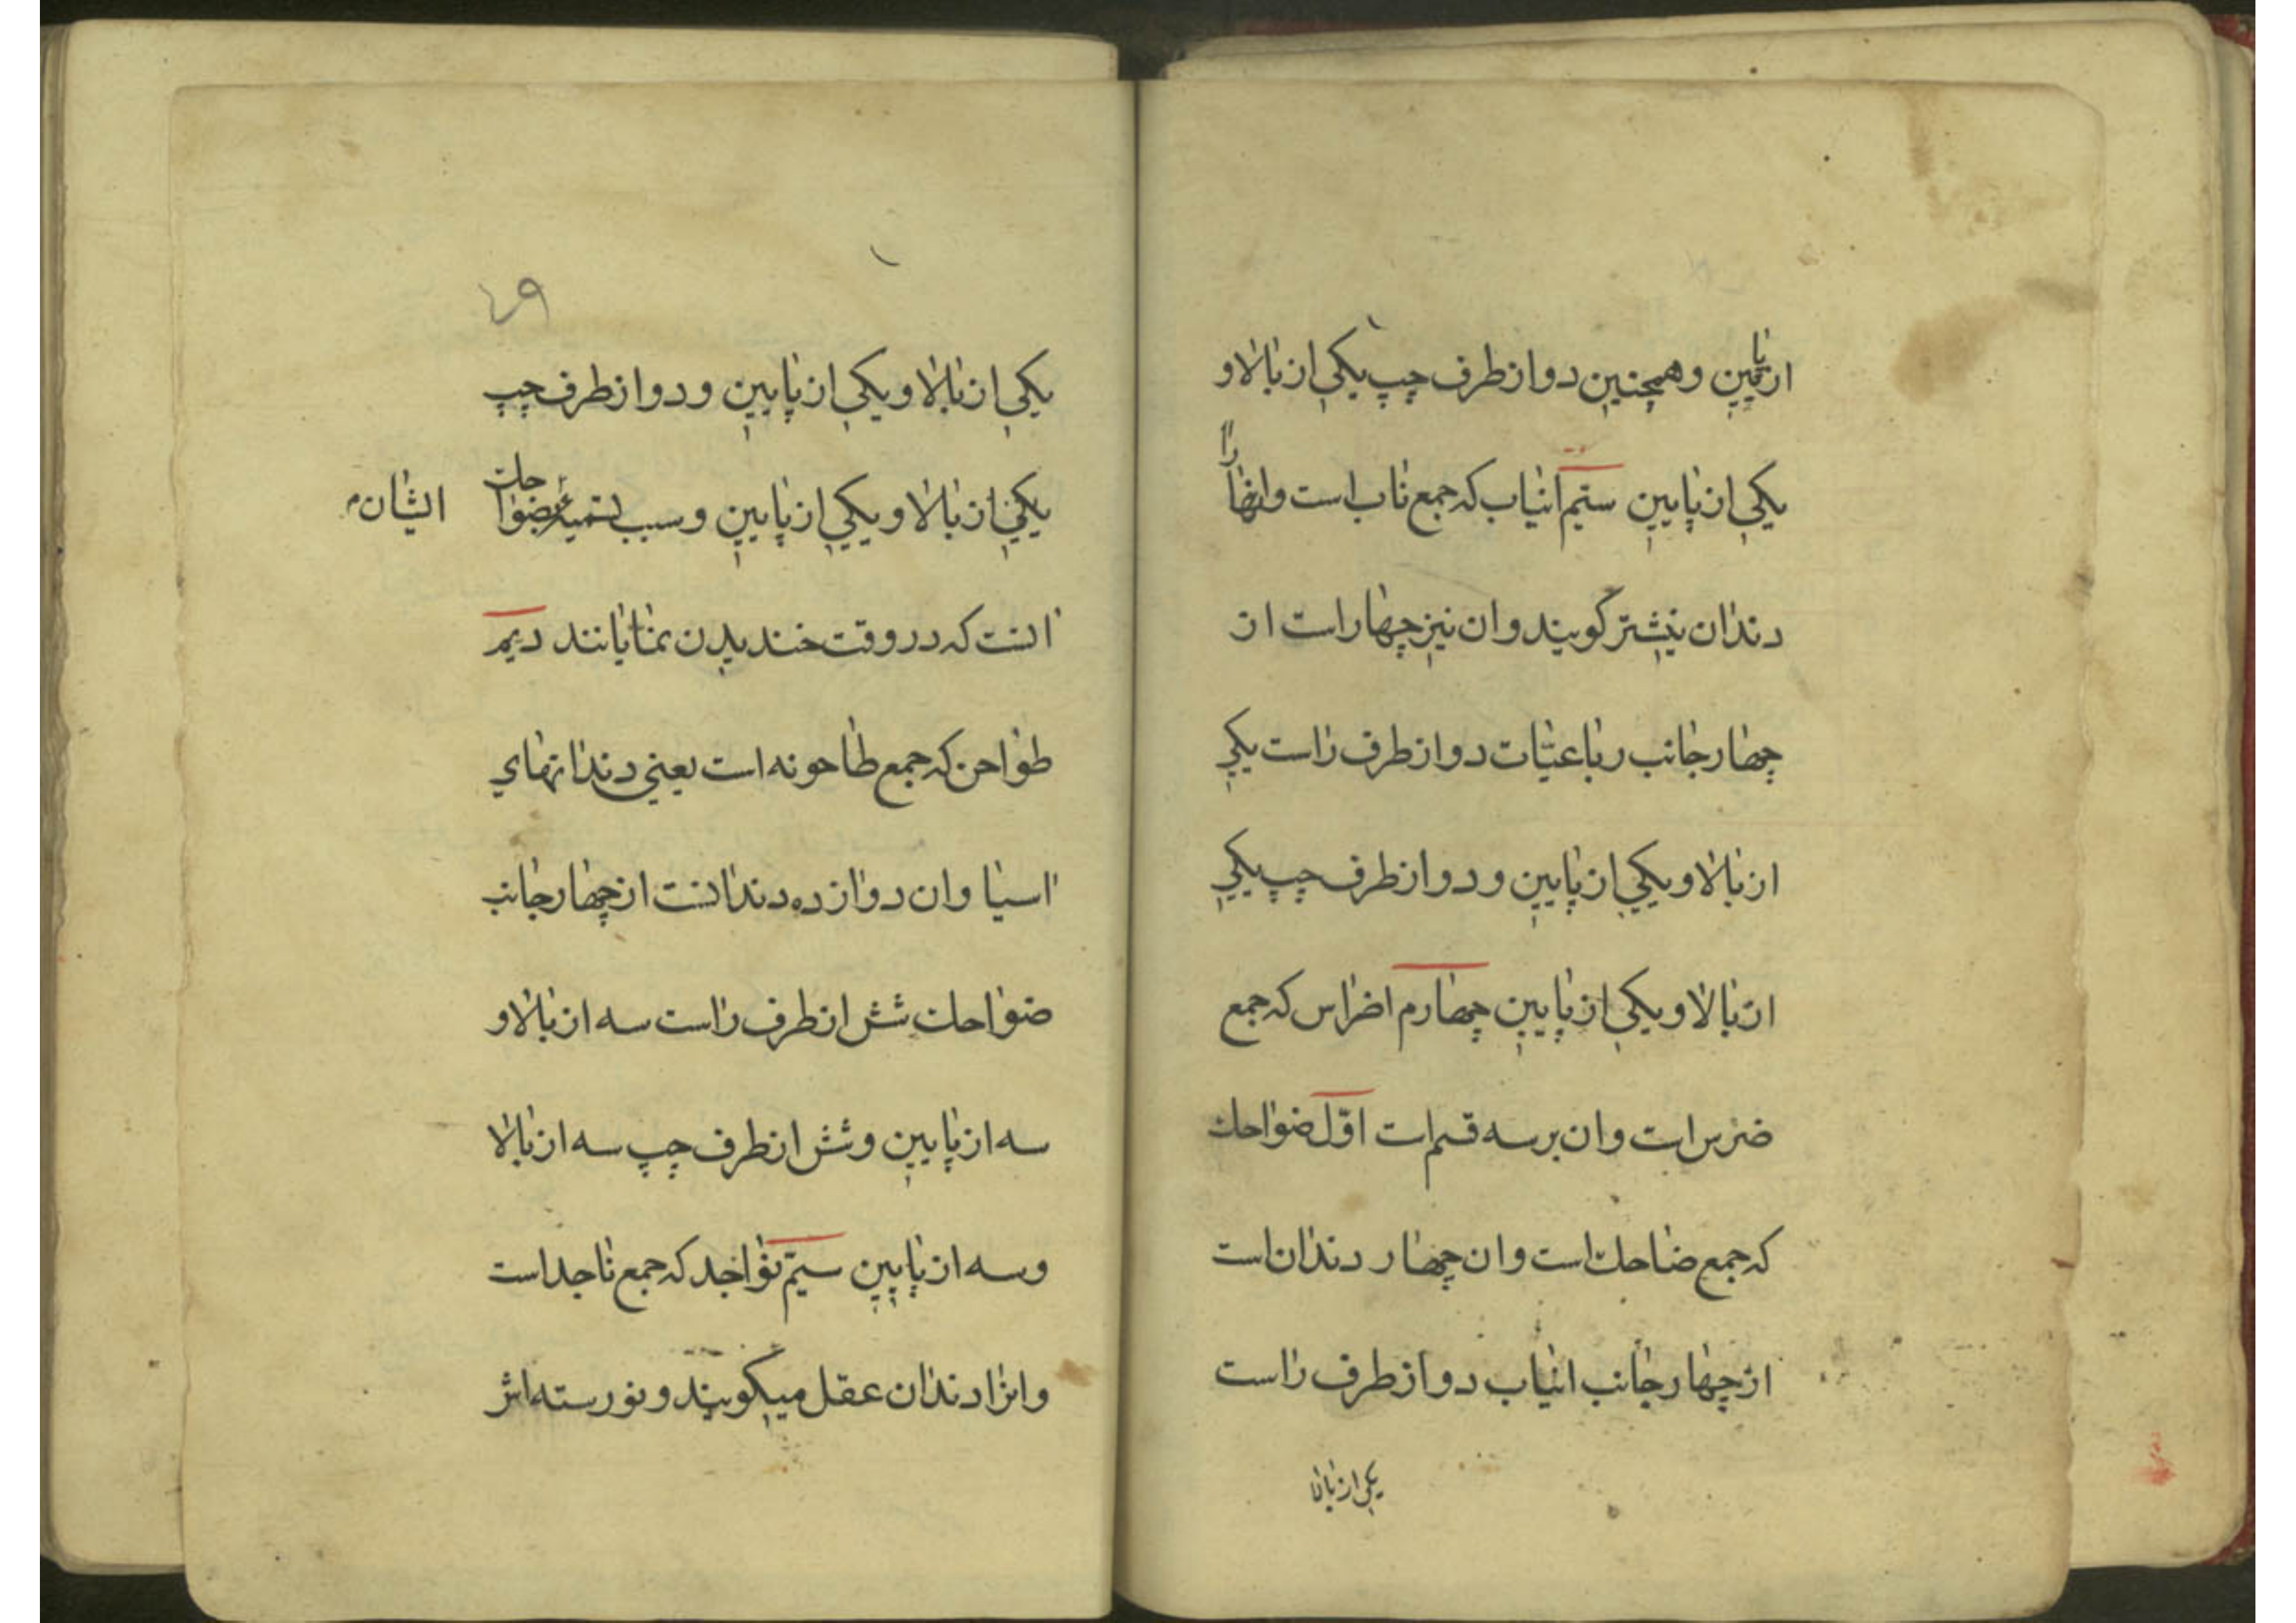 از پایین و همچنین دو از طرف چپ یکی از بالا و
یکی از پایین سیّم انیاب که جمع ناب است و انها را
دندان نیشتر گویند و ان نیز چهار است از
چهار جانب رباعیات دو از طرف راست یکی
از بالا و یکی از پایین و دو از طرف چپ یکی
از بالا و یکی از پایین چهارم اضراس که جمع
ضرس است و ان بر سه قسم است اوّل ضواحک
که جمع ضاحک است و ان چهار دندان است
از چهار جانب انیاب دو از طرف راست
یکی از بالا
یکی از بالا و یکی از پایین و دو از طرف چپ
یکی از بالا و یکی از پایین و سبب تسمیهٔ ضواحک
ایشان
انست که در وقت خندیدن نمایانند دیم
طواحن که جمع طاحونه است یعنی دندانهای
اسیا و ان دوازده دندانست از چهار جانب
ضواحک شش از طرف راست سه از بالا و
سه از پایین و شش از طرف چپ سه از بالا
و سه از پایین سیّم نواجد که جمع ناجد است
و انرا دندان عقل میگویند و نورسته اش